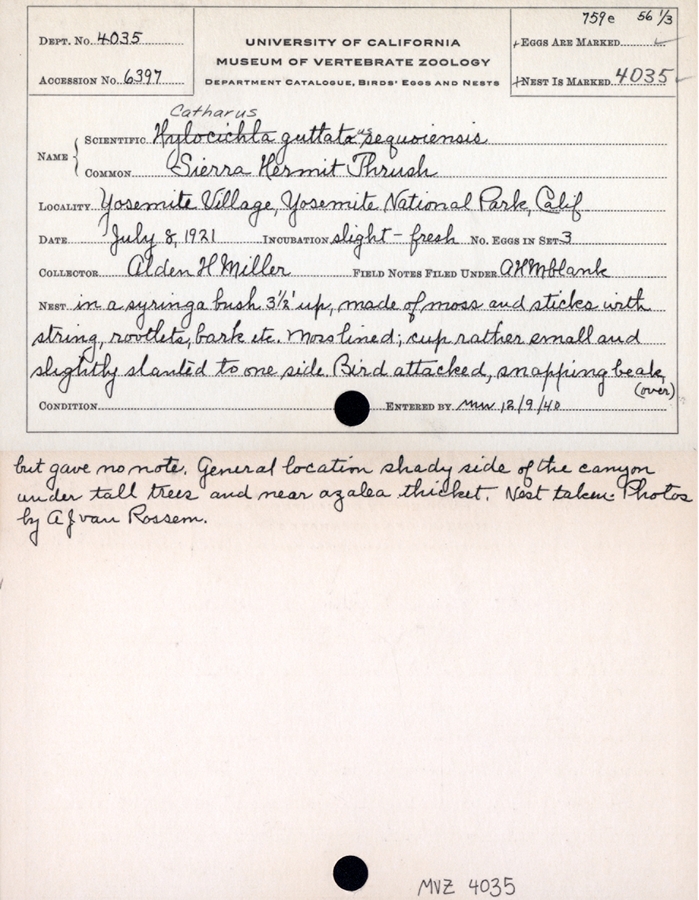 759e 56 1/3
DEPT. NO. 4035
UNIVERSITY OF CALIFORNIA
EGGS ARE MARKED
MUSEUM OF VERTEBRATE ZOOLOGY
ACCESSION NO. 6397
DEPARTMENT CATALOGUE, BIRDS' EGGS AND NESTS
NEST IS MARKED 4035
Catharus
NAME { SCIENTIFIC Hylocichla guttata us sequoiensis
COMMON Sierra Hermit Thrush
LOCALITY Yosemite Village, Yosemite National Park, Calif
DATE July 8, 1921 INCUBATION slight - fresh NO. EGGS IN SET 3
COLLECTOR Alden H Miller FIELD NOTES FILED UNDER AHM blank
NEST in a syringa bush 3½' up, made of moss and sticks with
string, rootlets, bark etc. Moss lined; cup rather small and
slightly slanted to one side. Bird attacked, snapping beak,
(over)
CONDITION ENTERED BY mw 12/9/40
but gave no note. General location shady side of the canyon
under tall trees and near azalea thicket. Nest taken. Photos
by AJ van Rossem.
MVZ 4035